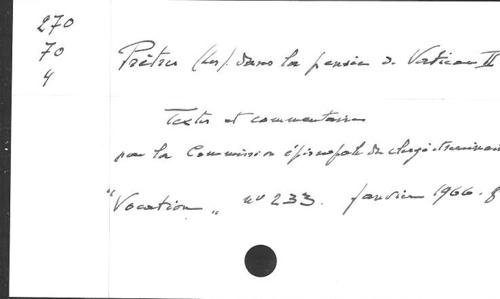 270
70
4
Prêtres (les). dans la pensée de Vatican II
Textes et commentaires
par la Commission épiscopale du clergé et séminaires
"Vocation" n° 233. janvier 1966.